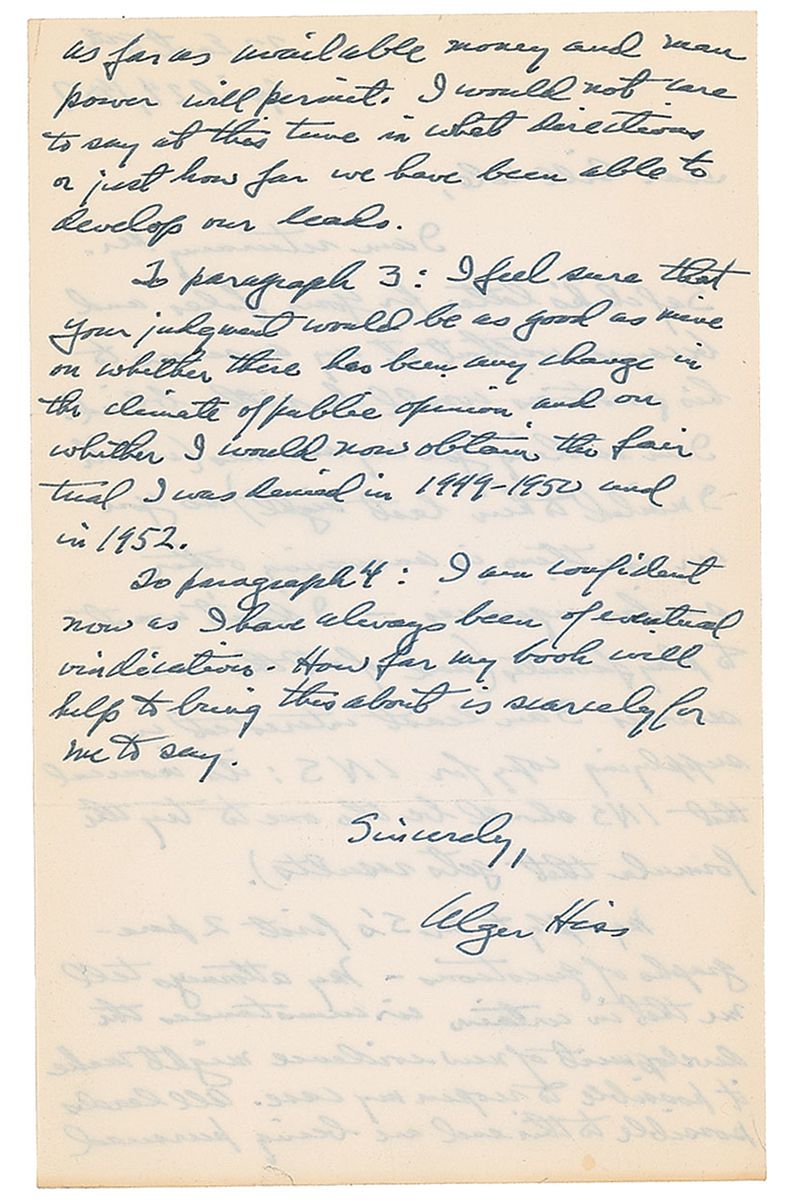 as far as available money and man
power will permit. I would not care
to say at this time in what directions
or just how far we have been able to
develop our leads.
To paragraph 3: I feel sure that
your judgment would be as good as mine
on whether there has been any change in
the climate of public opinion and on
whether I would now obtain the fair
trial I was denied in 1949-1950 and
in 1952.
To paragraph 4: I am confident
now as I have always been of eventual
vindication. How far my book will
help to bring this about is scarcely for
me to say.
Sincerely,
Alger Hiss